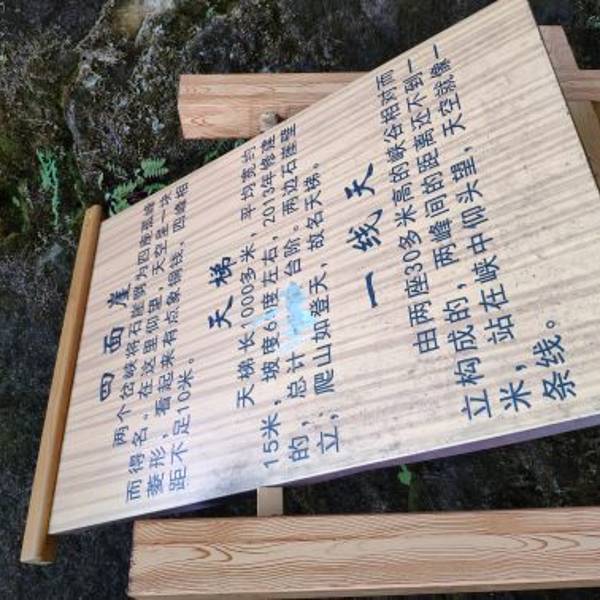 四面崖
两个岔峡将石崖割为四座孤峰
而得名。在这里仰望，天空呈一块
菱形，看起来有点象铜钱。四峰相
距不足10米。
天梯
天梯长1000多米，平均宽约
15米，坡度6度左右，2013年修建
的，总计台阶。两边石崖壁
立，爬山如登天，故名天梯。
一线天
由两座30多米高的峡谷相对而
立构成的，两峰间的距离还不到一
米，站在峡中仰头望，天空就像一
条线。